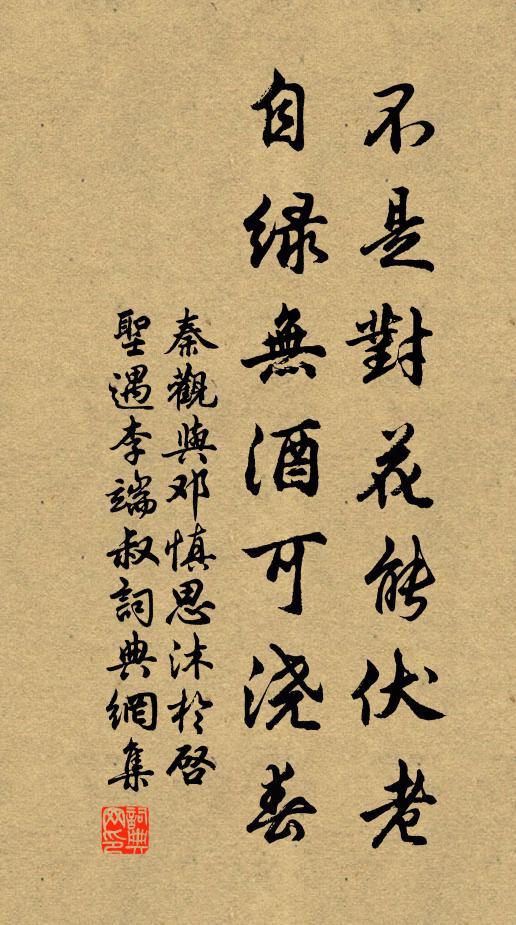 不是對花能伏老
自緣無酒可浇春
秦觀與邓慎思沐於啓
聖遇李端叔詞典網集
詞典网印